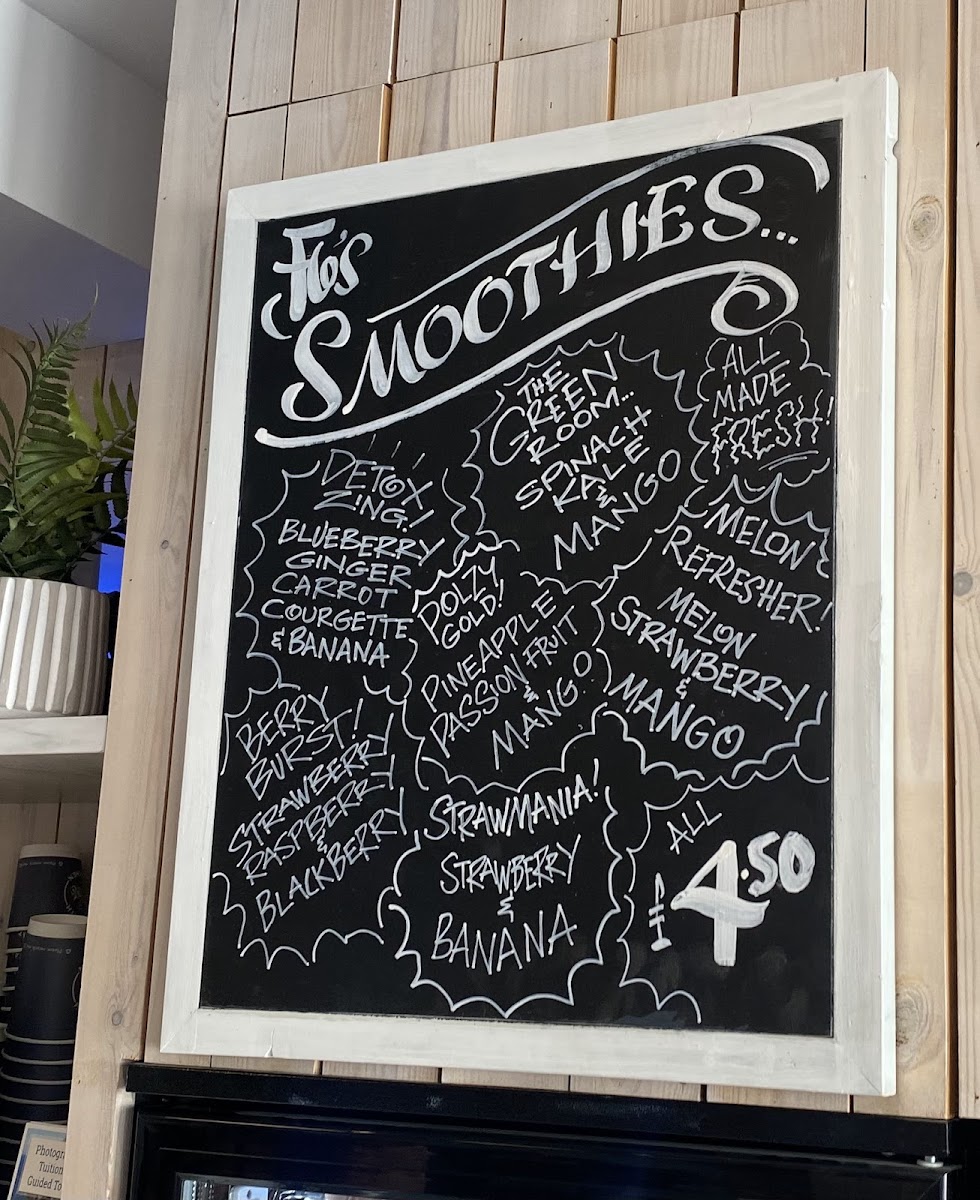 Flo's
SMOOTHIES...
ALL
MADE
FRESH!
THE
GREEN
ROOM...
SPINACH
KALE
&
MANGO
DETOX
ZING!
BLUEBERRY
GINGER
CARROT
COURGETTE
& BANANA
POLZY
GOLD!
PINEAPPLE
PASSION FRUIT
&
MANGO
MELON
REFRESHER!
MELON
STRAWBERRY
&
MANGO
BERRY
BURST!
STRAWBERRY
RASPBERRY
&
BLACKBERRY
STRAWMANIA!
STRAWBERRY
&
BANANA
ALL
£4.50
Photogr
Tuition
Guided To